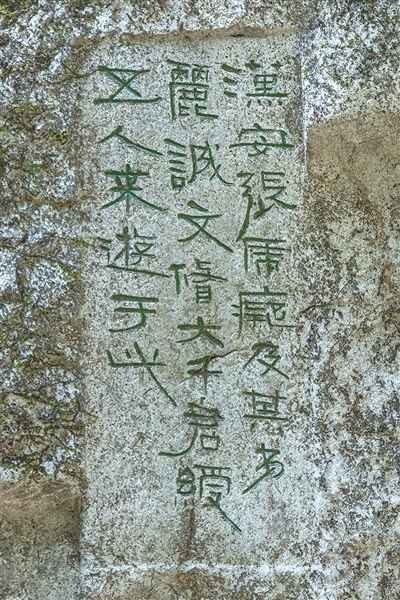 漢安張虎癡及其弟
麗誠文脩大千君綬
五人来遊于此